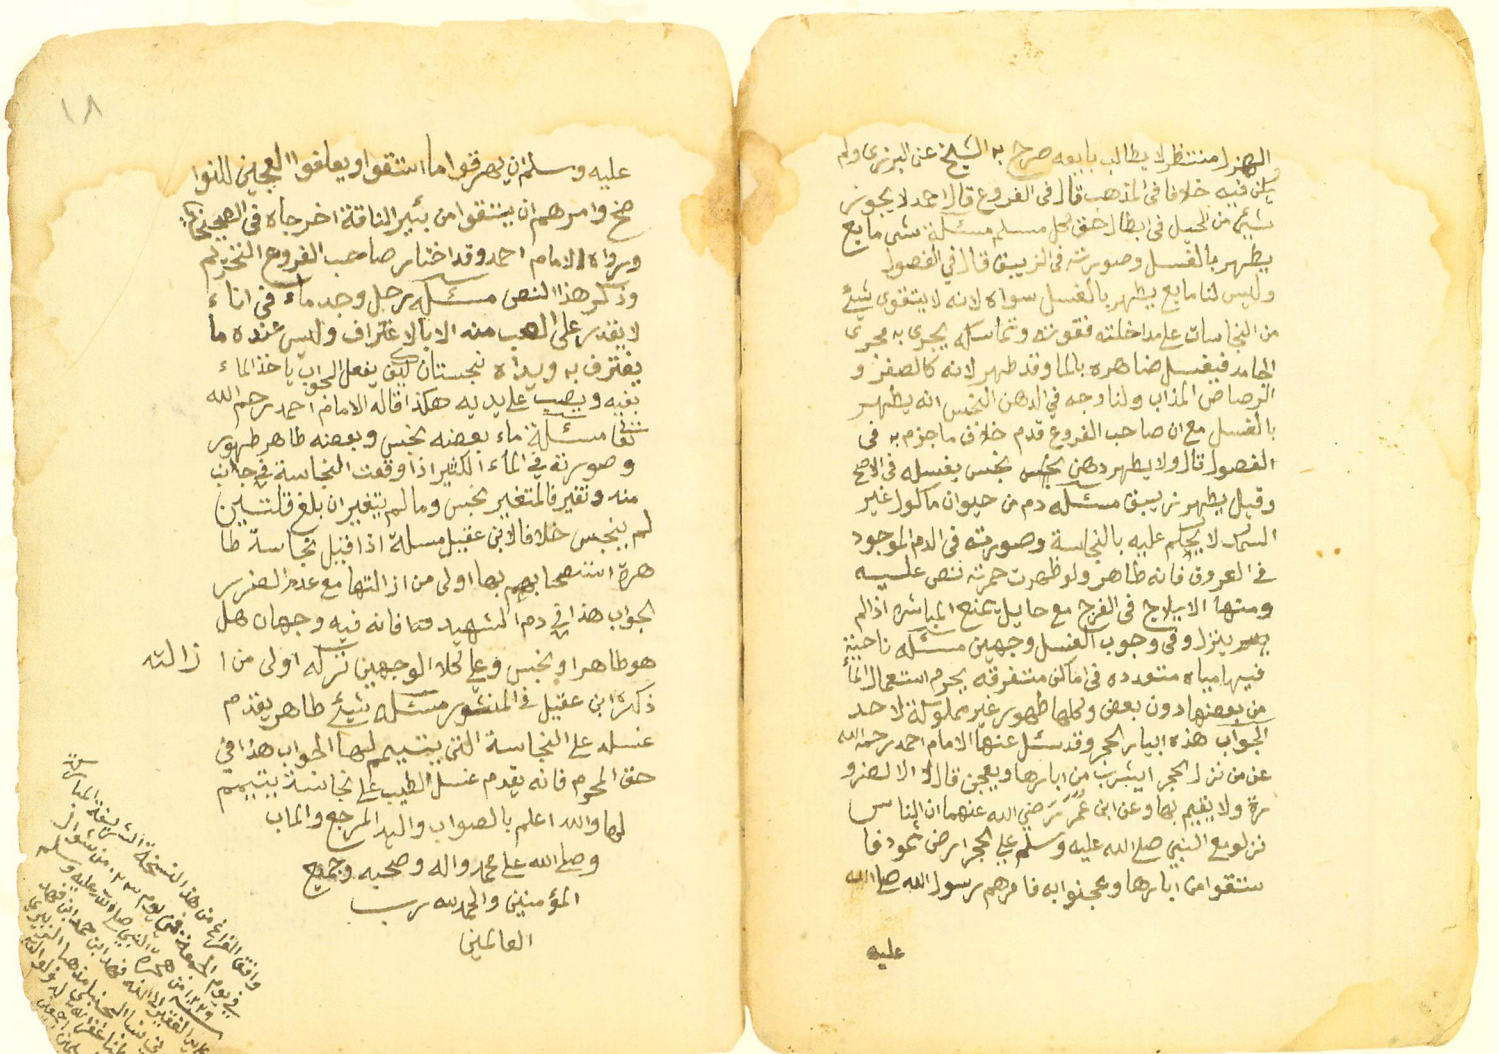 الهزل منتظر لا يطالب بايعه صرح به الشيخ عن البرزى ولم
يكن فيه خلافا فى المذهب قال فى الفروع قال احمد لا يجوز
شيئ من الحيل فى ابطال حق كل مسلم مسئلة شى مايع
يطهر بالغسل وصورته فى الزيبق قال في الفصول
وليس لنا مايع يطهر بالغسل سواه لانه لا يتقوى شيئ
من النجاسات على مداخلته فقوته وتماسكه يجرى به مجرى
الجامد فيغسل ضاهره بالما وقد طهر لانه كالصفر و
الرصاص المذاب ولنا وجه في الدهن النجس انه يطهر
بالغسل مع ان صاحب الفروع قدم خلاف ما جزم به فى
الفصول قال ولا يطهر دهن نجس بغسله فى الاصح
وقيل يطهر زيبق مسئله دم من حيوان ماكول غير
السمك لا يحكم عليه بالنجاسة وصورته فى الدم الموجود
في العروق فانه طاهر ولو ظهرت حمرته نص عليه
ومنها الايلاج فى الفرج مع حايل يمنع المباشره اذا لم
ينزل وفى وجوب الغسل وجهين مسئله ناحية
فيها مياه متعدده فى اماكن متفرقه يحرم استعمال الماء
من بعضها دون بعض وكلها طهور غير مملوكة لاحد
الجواب هذه ابيار الحجر وقد سئل عنها الامام احمد رحمه الله
عن من نزل الحجر ايشرب من ابارها ويعجن قال لا الا لضرو
رة ولا يقيم بها وعن ابن عمر رضي الله عنهما ان الناس
نزلو مع النبي صلى الله عليه وسلم على الحجر ارض ثمود فا
ستقوا من ابارها وعجنوا به فامرهم رسول الله صلى الله
عليه
١٨
عليه وسلم ان يهرقوا ما استقوا ويعلفوا العجين للنوا
ضح وامرهم ان يستقوا من بئير الناقة اخرجاه فى الصحيحين
ورواه الامام احمد وقد اختار صاحب الفروع التحريم
وذكر هذا النص مسئله رجل وجد ماء فى اناء
لا يقدر على الصب منه الا بالاغتراف وليس عنده ما
يغترف به ويداه نجستان كيف يفعل الجواب ياخذ الماء
بفيه ويصب على يديه هكذا قاله الامام احمد رحمه الله
تعا مسئلة ماء بعضه نجس وبعضه طاهر طهور
وصورته في الماء الكثير اذا وقعت النجاسة في جانب
منه وتغير فالمتغير نجس وما لم يتغير ان بلغ قلتين
لم ينجس خلافا لابن عقيل مسلة اذا قيل نجاسة طا
هرة استصحابها اولى من ازالتها مع عدم الضرر
الجواب هذا في دم الشهيد فانه فيه وجهان هل
هو طاهر او نجس وعلى كلا الوجهين تركه اولى من ازالته
ذكره ابن عقيل في المنثور مسئله شيئ طاهر يقدم
غسله على النجاسة التى يتيمم لها الجواب هذا في
حق المحرم فانه يقدم غسل الطيب على نجاسة يتيمم
لها والله اعلم بالصواب واليه المرجع والماب
وصلى الله على محمد واله وصحبه وجميع
المؤمنين والحمد لله رب
العالمين
وافق الفراغ من هذه النسخة الشريفة
في يوم الجمعة
من هجرة النبي صلى الله عليه وسلم
الفقير الى الله فهد ابن حمد ابن فهد
الحنبلي مذهبا